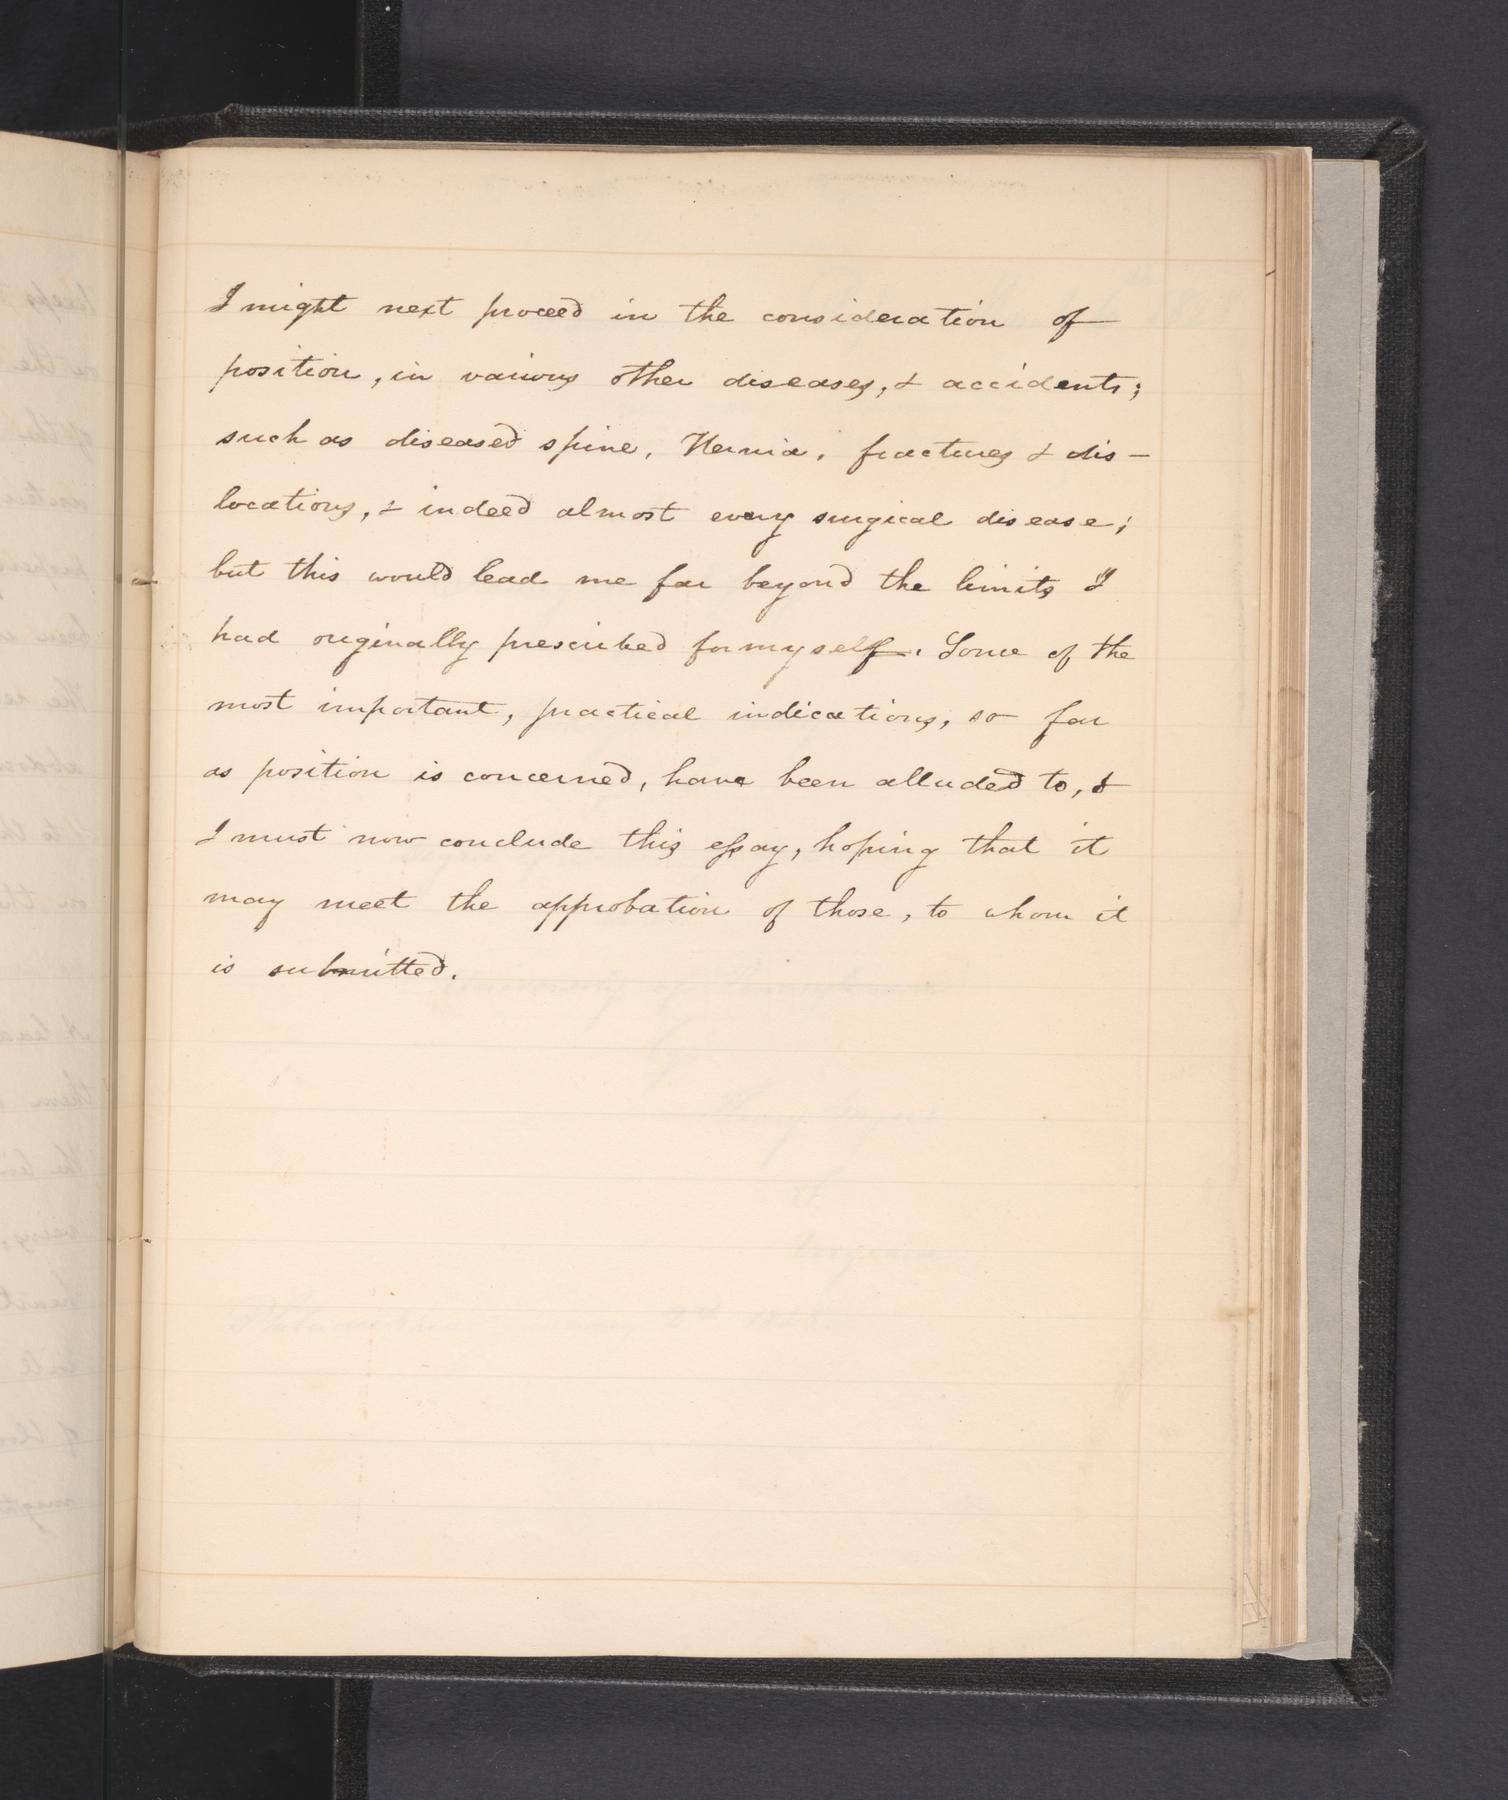 I might next proceed in the consideration of
position, in various other diseases, & accidents;
such as diseased spine, Hernia, fractures & dis-
locations, & indeed almost every surgical disease;
but this would lead me far beyond the limits I
had originally prescribed for myself. Some of the
most important, practical indications, so far
as position is concerned, have been alluded to, &
I must now conclude this essay, hoping that it
may meet the approbation of those, to whom it
is submitted.